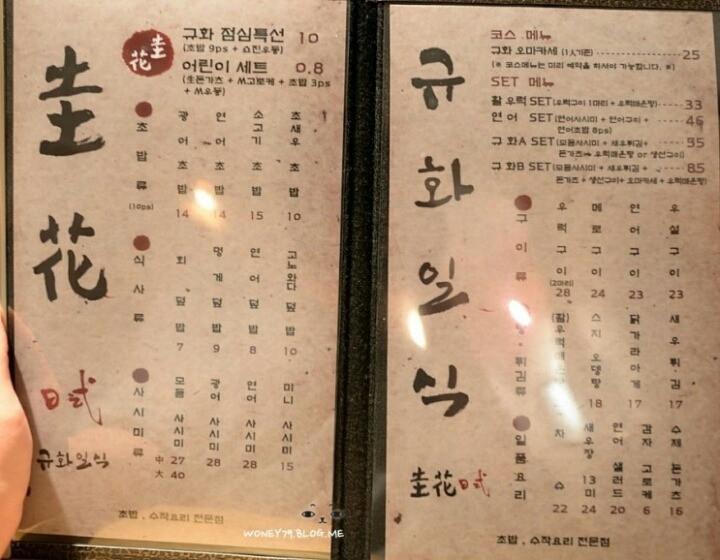 圭花
日式
규화일식
圭花
규화 점심특선 10
(초밥 9ps + 쇼진우동)
어린이 세트 0.8
(生돈가츠 + 쓰고로케 + 초밥 3ps
+ 쓰우동)
초밥류
(10ps)
광어초밥 14
연어초밥 14
소고기초밥 15
초새우초밥 10
식사류
회덮밥 7
멍게덮밥 9
연어덮밥 8
고노와다덮밥 10
사시미류
모듬사시미 中 27
大 40
광어사시미 28
연어사시미 28
미니사시미 15
초밥 , 수작요리 전문점
규화일식
圭花日式
코스 메뉴
규화 오마카세 (1人기준) 25
(※ 코스메뉴는 미리 예약을 하셔야 가능합니다. ※)
SET 메뉴
활우럭 SET(우럭구이 1마리 + 우럭매운탕) 33
연어 SET(연어사시미 + 연어구이 + 46
연어초밥 8ps)
규화A SET(모듬사시미 + 새우튀김 + 55
돈가츠 + 우럭매운탕 or 생선구이)
규화B SET(모듬사시미 + 새우튀김 + 85
돈가츠 + 생선구이 + 오마카세 + 우럭매운탕)
구이류
우럭구이 (2마리) 28
메로구이 24
연어구이 23
우설구이 23
탕·튀김류
(활)우럭매운탕
스지오뎅탕 18
닭가라아게 17
새우튀김 17
일품요리
22
새우장 13
연어샐러드 20
감자고로케 6
수제돈가츠 16
초밥 , 수작요리 전문점
WONEY79.BLOG.ME